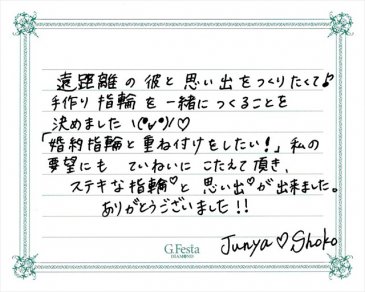 遠距離の彼と思い出をつくりたくて♪
手作り指輪を一緒につくることを
決めました ヽ(°▿°)ノ♡
「婚約指輪と重ね付けをしたい!」私の
要望にも ていねいに こたえて頂き、
ステキな指輪♡と 思い出♡が出来ました。
ありがとうございました!!
Junya ♡ Shoko
G.Festa
DIAMOND